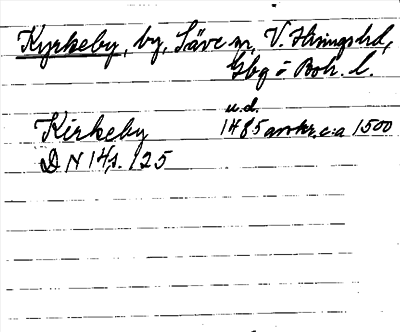 Kyrkeby, by, Säve sn, V. Hisings hd,
Gbg o Boh. l.
u.d.
Kirkeby 1485 avskr. c:a 1500
D N 14, s. 125